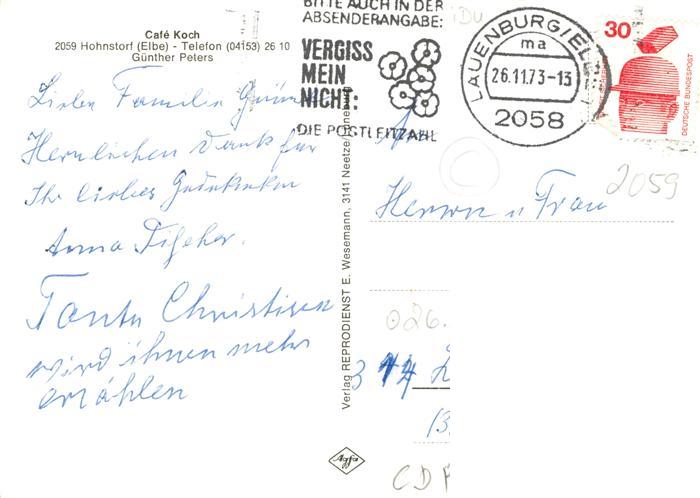 Café Koch
2059 Hohnstorf (Elbe) - Telefon (04153) 26 10
Günther Peters
Lieben Familie
Herzlichen Dank für
Ihr liebes Gedenken
Anna Fischer.
Tante Christien
wird ihnen mehr
erzählen
Verlag REPRODIENST E. Wesemann, 3141 Neetze/
Agfa
BITTE AUCH IN DER
ABSENDERANGABE:
VERGISS
MEIN
NICHT:
DIE POSTLEITZAHL
LAUENBURG/ELBE 1
ma
26.11.73-13
2058
30
DEUTSCHE BUNDESPOST
2059
Herrn u Frau
026.
13
CDF